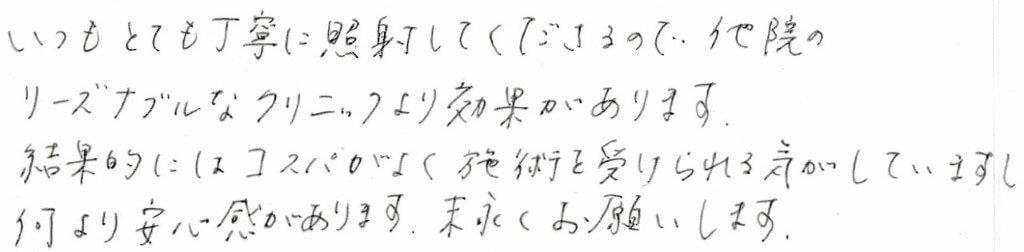 いつもとても丁寧に照射してくださるので、他院の
リーズナブルなクリニックより効果があります。
結果的にはコスパがよく施術を受けられる気がしていますし
何より安心感があります。末永くお願いします。